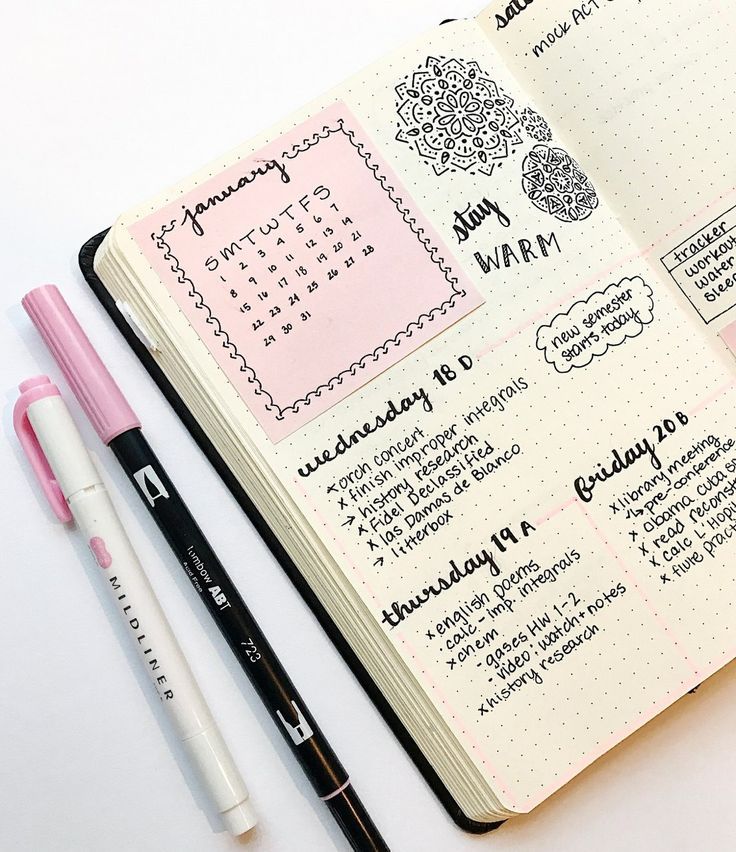 january
S M T W T F S
1 2 3 4 5 6 7
8 9 10 11 12 13 14
15 16 17 18 19 20 21
22 23 24 25 26 27 28
29 30 31
stay
WARM
new semester
starts today
wednesday 18 D
x orch concert
x finish improper integrals
→ history research
x Fidel Declassified
x las Damas de Blanco
→ litterbox
thursday 19 A
x english poems
· calc - imp. integrals
x chem
- gases HW 1-2
- video: watch + notes
x history research
mock ACT
tracker
workout
water
sleep
friday 20 B
x library meeting
↳ pre-conference
x obama cuba
x read
x calc L'Hopi
x flute pract
MILDLINER
Tombow ABT
Acid Free
723